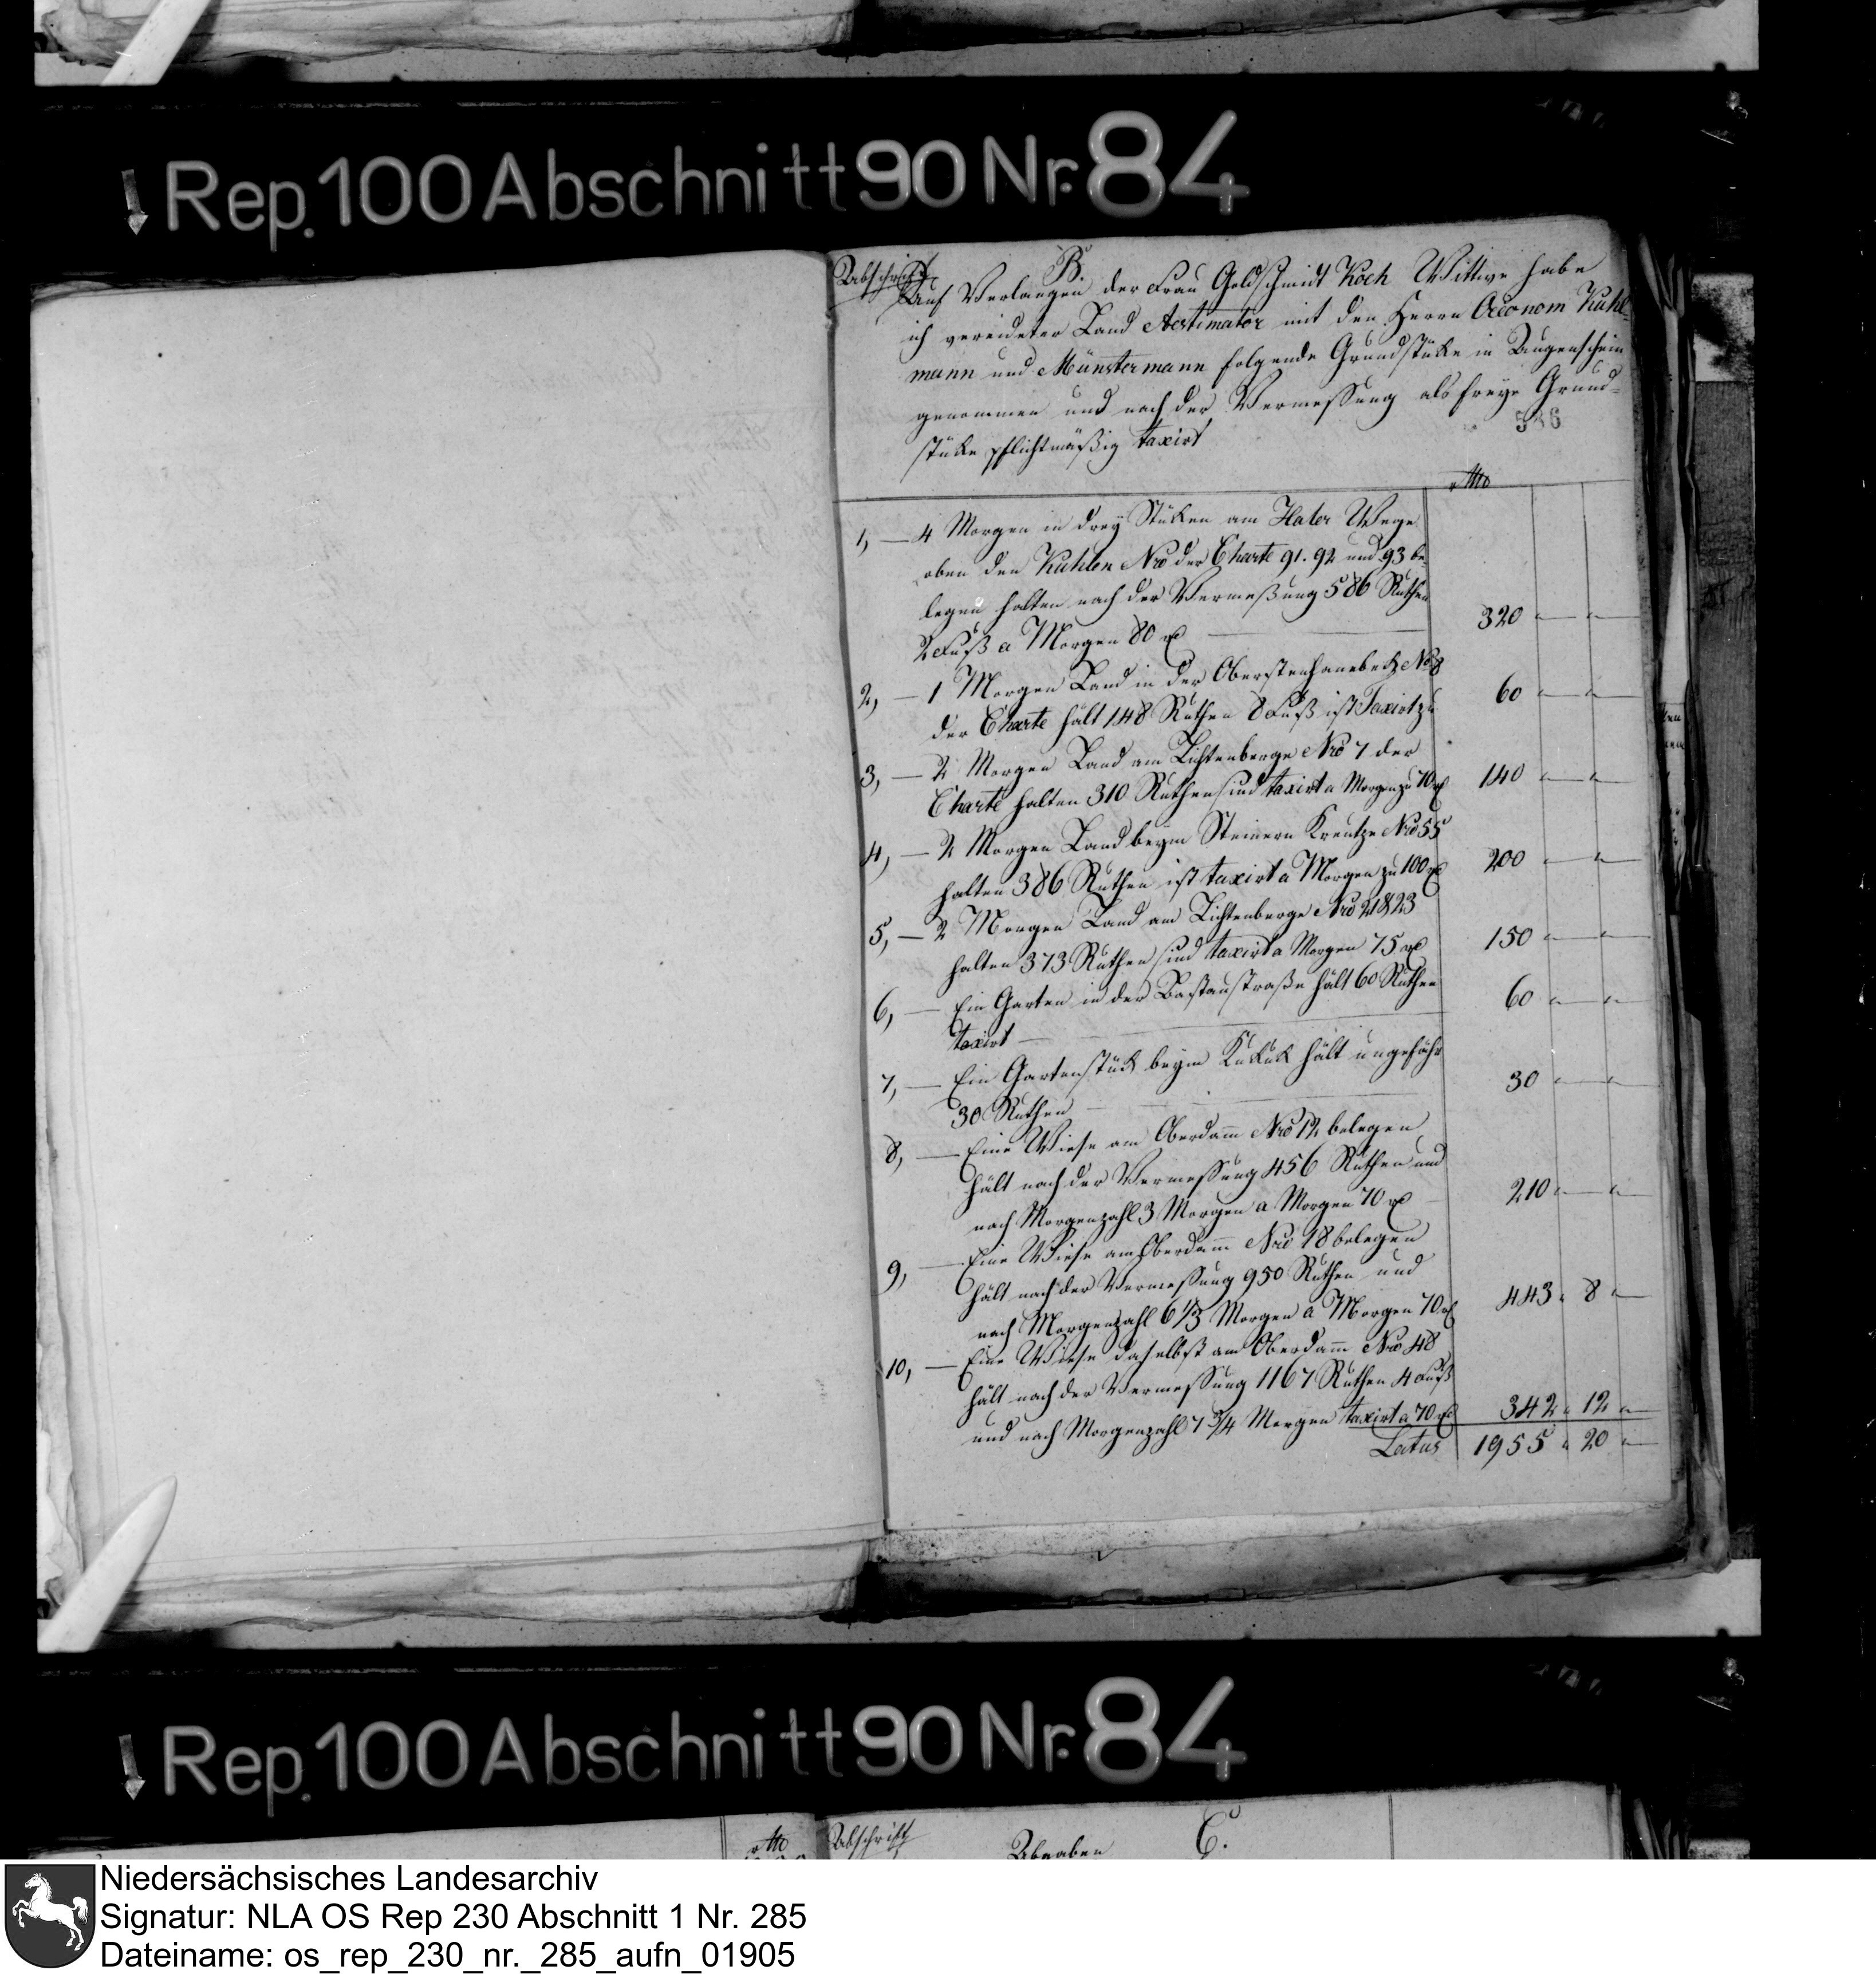 Rep. 100 Abschnitt 90 Nr. 84
Abschrift
B.
Auf Verlangen der Frau Goldschmidt Koch Wittwe habe
ich vereideter Land Aestimator mit den Herrn Oeconom Kuhl-
mann und Münstermann folgende Grundstüke in Augenschein
genommen und nach der Vermeßung als freye Grund-
stüke pflichtmäßig taxirt
536
1, — 4 Morgen in drey Stüken am Haler Wege
oben den Kuhlen Nro der Charte 91. 92 und 93 be-
legen halten nach der Vermeßung 586 Ruthen
2 Fuß a Morgen 80 rℓ — 320 " — " —
2, — 1 Morgen Land in der Obersten hanebek No 8
der Charte hält 148 Ruthen 8 Fuß ist Taxirt zu 60 " — " —
3, — 2 Morgen Land am Lichtenberge Nro 7 der
Charte halten 310 Ruthen sind taxirt a Morgen zu 70 rℓ 140 " — " —
4, — 2 Morgen Land beym Steinern Kreutze Nro 55
halten 386 Ruthen ist taxirt a Morgen zu 100 rℓ 200 " — " —
5, — 2 Morgen Land am Lichtenberge Nro 21 & 23
halten 373 Ruthen sind taxirt a Morgen 75 rℓ 150 " — " —
6, — Ein Garten in der Bastaustraße hält 60 Ruthen
taxirt — 60 " — " —
7, — Ein Gartenstück beym Kukuk hält ungefähr
30 Ruthen — 30 " — " —
8, — Eine Wiese am Oberdam̅ Nro 12 belegen
hält nach der Vermeßung 456 Ruthen und
nach Morgenzahl 3 Morgen a Morgen 70 rℓ — 210 " — " —
9, — Eine Wiese am Oberdam̅ Nro 18 belegen
hält nach der Vermeßung 950 Ruthen und
nach Morgenzahl 6 1/3 Morgen a Morgen 70 rℓ 443 " 8 " —
10, — Eine Wiese daselbst am Oberdam̅ Nro 48
hält nach der Vermeßung 1167 Ruthen 4 Fuß
und nach Morgenzahl 7 3/4 Morgen taxirt a 70 rℓ 342 " 12 " —
Latus 1955 " 20 " —
Rep. 100 Abschnitt 90 Nr. 84
Abschrift
C.
Abgaben
Niedersächsisches Landesarchiv
Signatur: NLA OS Rep 230 Abschnitt 1 Nr. 285
Dateiname: os_rep_230_nr._285_aufn_01905